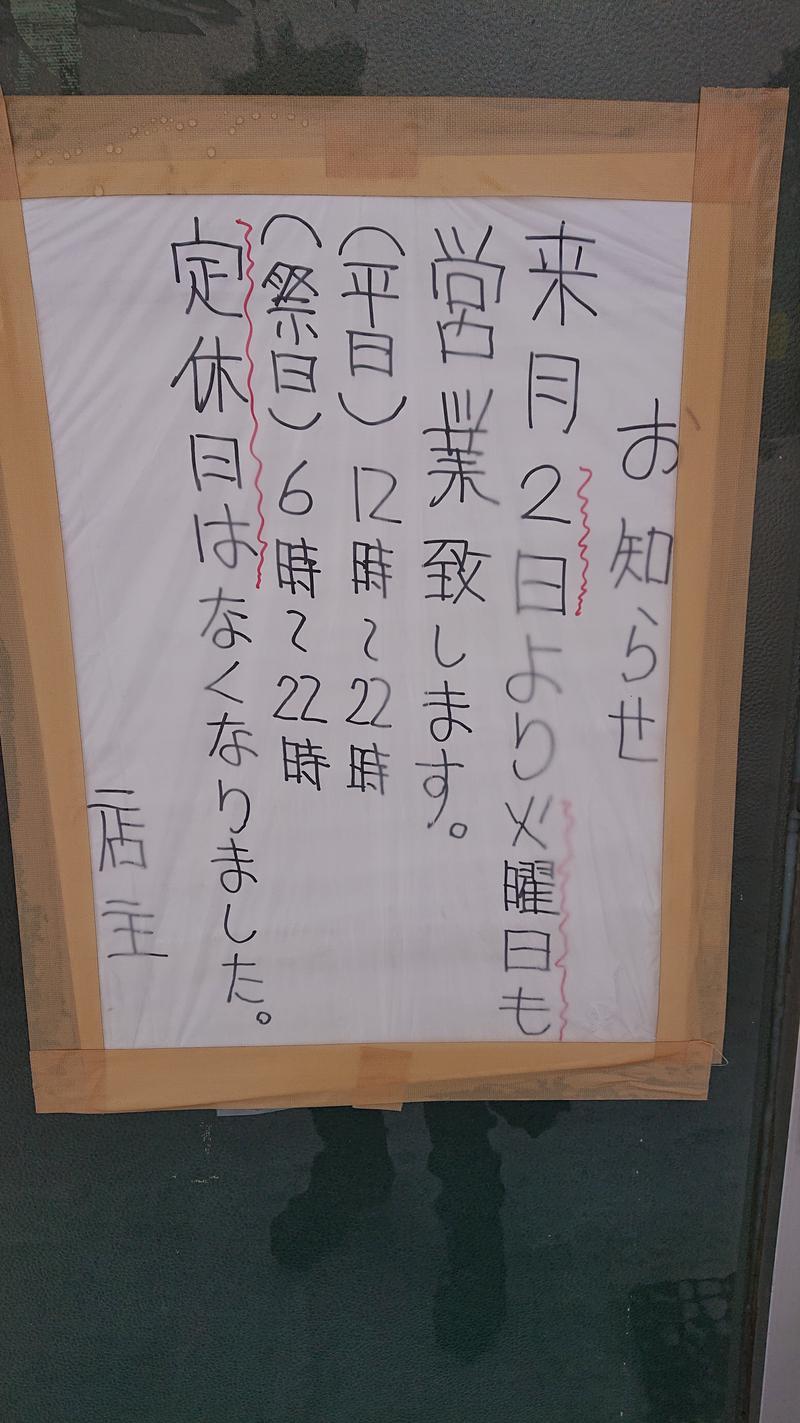 お知らせ
来月2日より火曜日も
営業致します。
(平日)12時~22時
(祭日)6時~22時
定休日はなくなりました。
店主